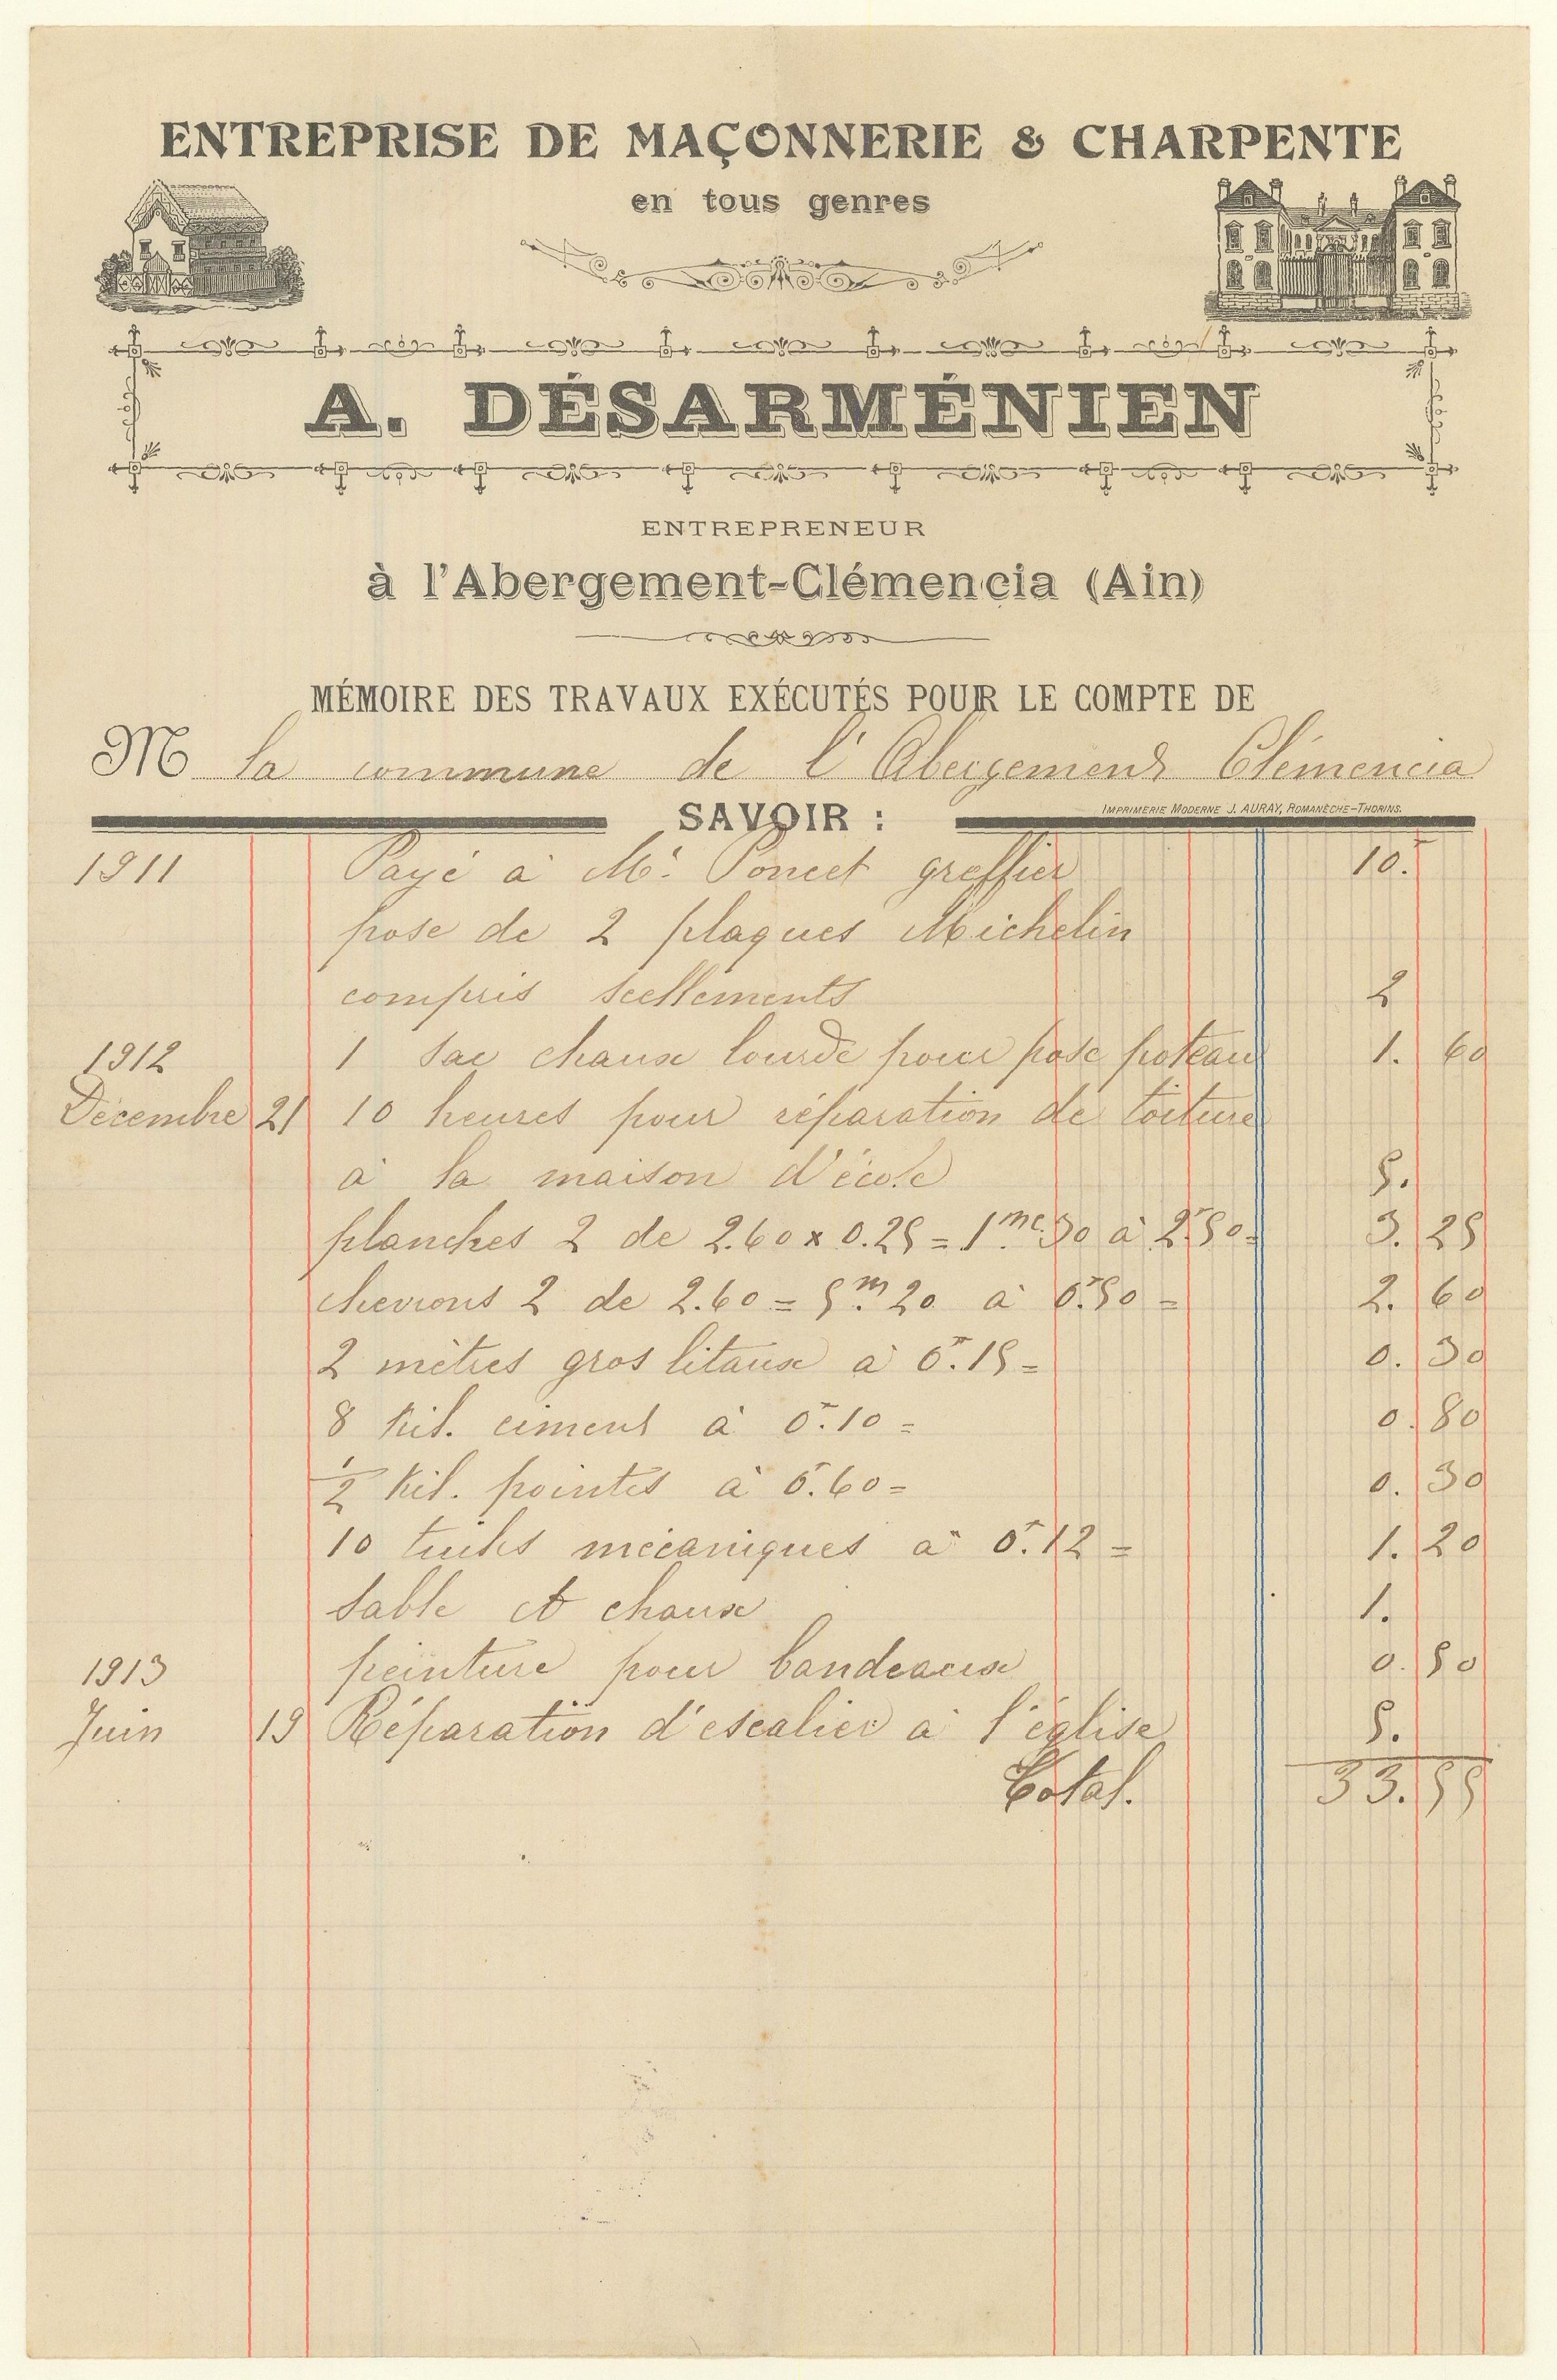 ENTREPRISE DE MAÇONNERIE & CHARPENTE
en tous genres
A. DÉSARMÉNIEN
ENTREPRENEUR
à l'Abergement-Clémencia (Ain)
MÉMOIRE DES TRAVAUX EXÉCUTÉS POUR LE COMPTE DE
M la commune de l'Abergement Clémencia
SAVOIR :
IMPRIMERIE MODERNE J. AURAY, ROMANÈCHE-THORINS.
1911 Payé à Mr. Poncet greffier 10.
pose de 2 plaques Michelin
compris scellements 2
1912 1 sac chaux lourde pour pose poteau 1. 60
Décembre 21 10 heures pour réparation de toiture
à la maison d'école 5.
planches 2 de 2.60 x 0.25 = 1mc.30 à 2f.50 = 3. 25
chevrons 2 de 2.60 = 5m.20 à 0f.50 = 2. 60
2 mètres gros litaux à 0f.15 = 0. 30
8 Kil. ciment à 0f.10 = 0. 80
1/2 Kil. pointes à 0f.60 = 0. 30
10 tuiles mécaniques à 0f.12 = 1. 20
Sable et chaux 1.
1913 peinture pour bandeaux 0. 50
Juin 19 Réparation d'escalier à l'église 5.
Total. 33.55